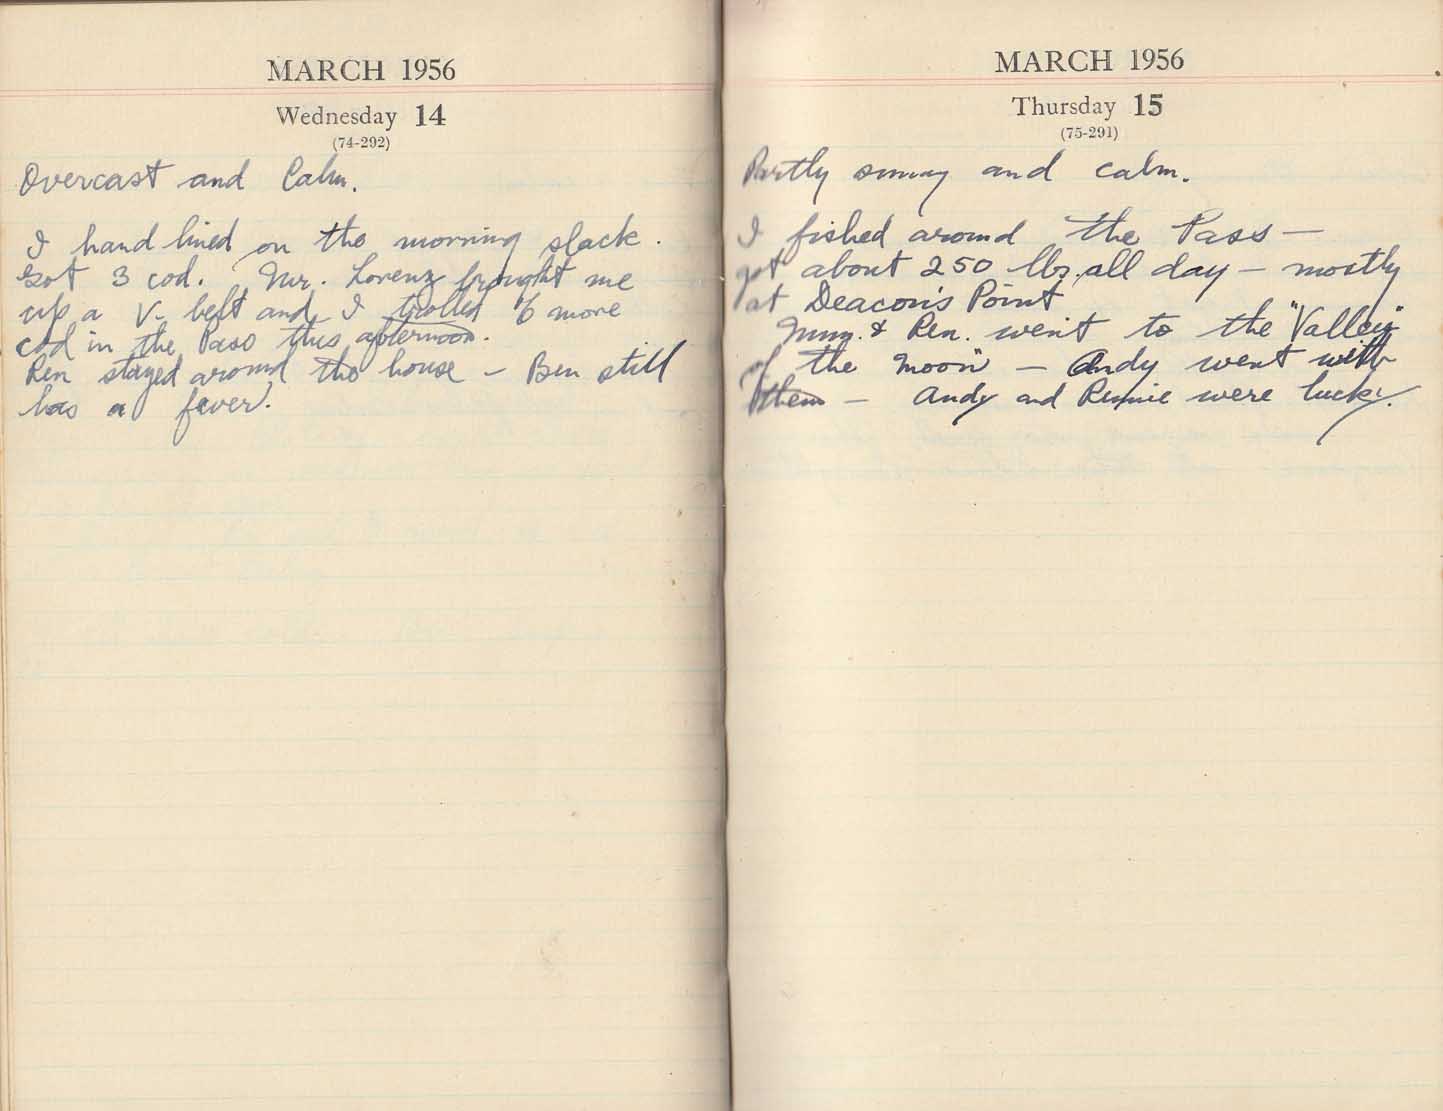 MARCH 1956
Wednesday 14
(74-292)
Overcast and Calm.
I hand lined on the morning slack.
Got 3 cod. Mr. Lorenz brought me
up a V-belt and I trolled 6 more
cod in the Pass this afternoon.
Ren stayed around the house – Ben still
has a fever.
MARCH 1956
Thursday 15
(75-291)
Partly sunny and calm.
I fished around the Pass –
got about 250 lbs. all day – mostly
at Deacon's Point
& Ren. went to the "Valley
of the Moon" – Andy went with
them – Andy and Rennie were lucky.